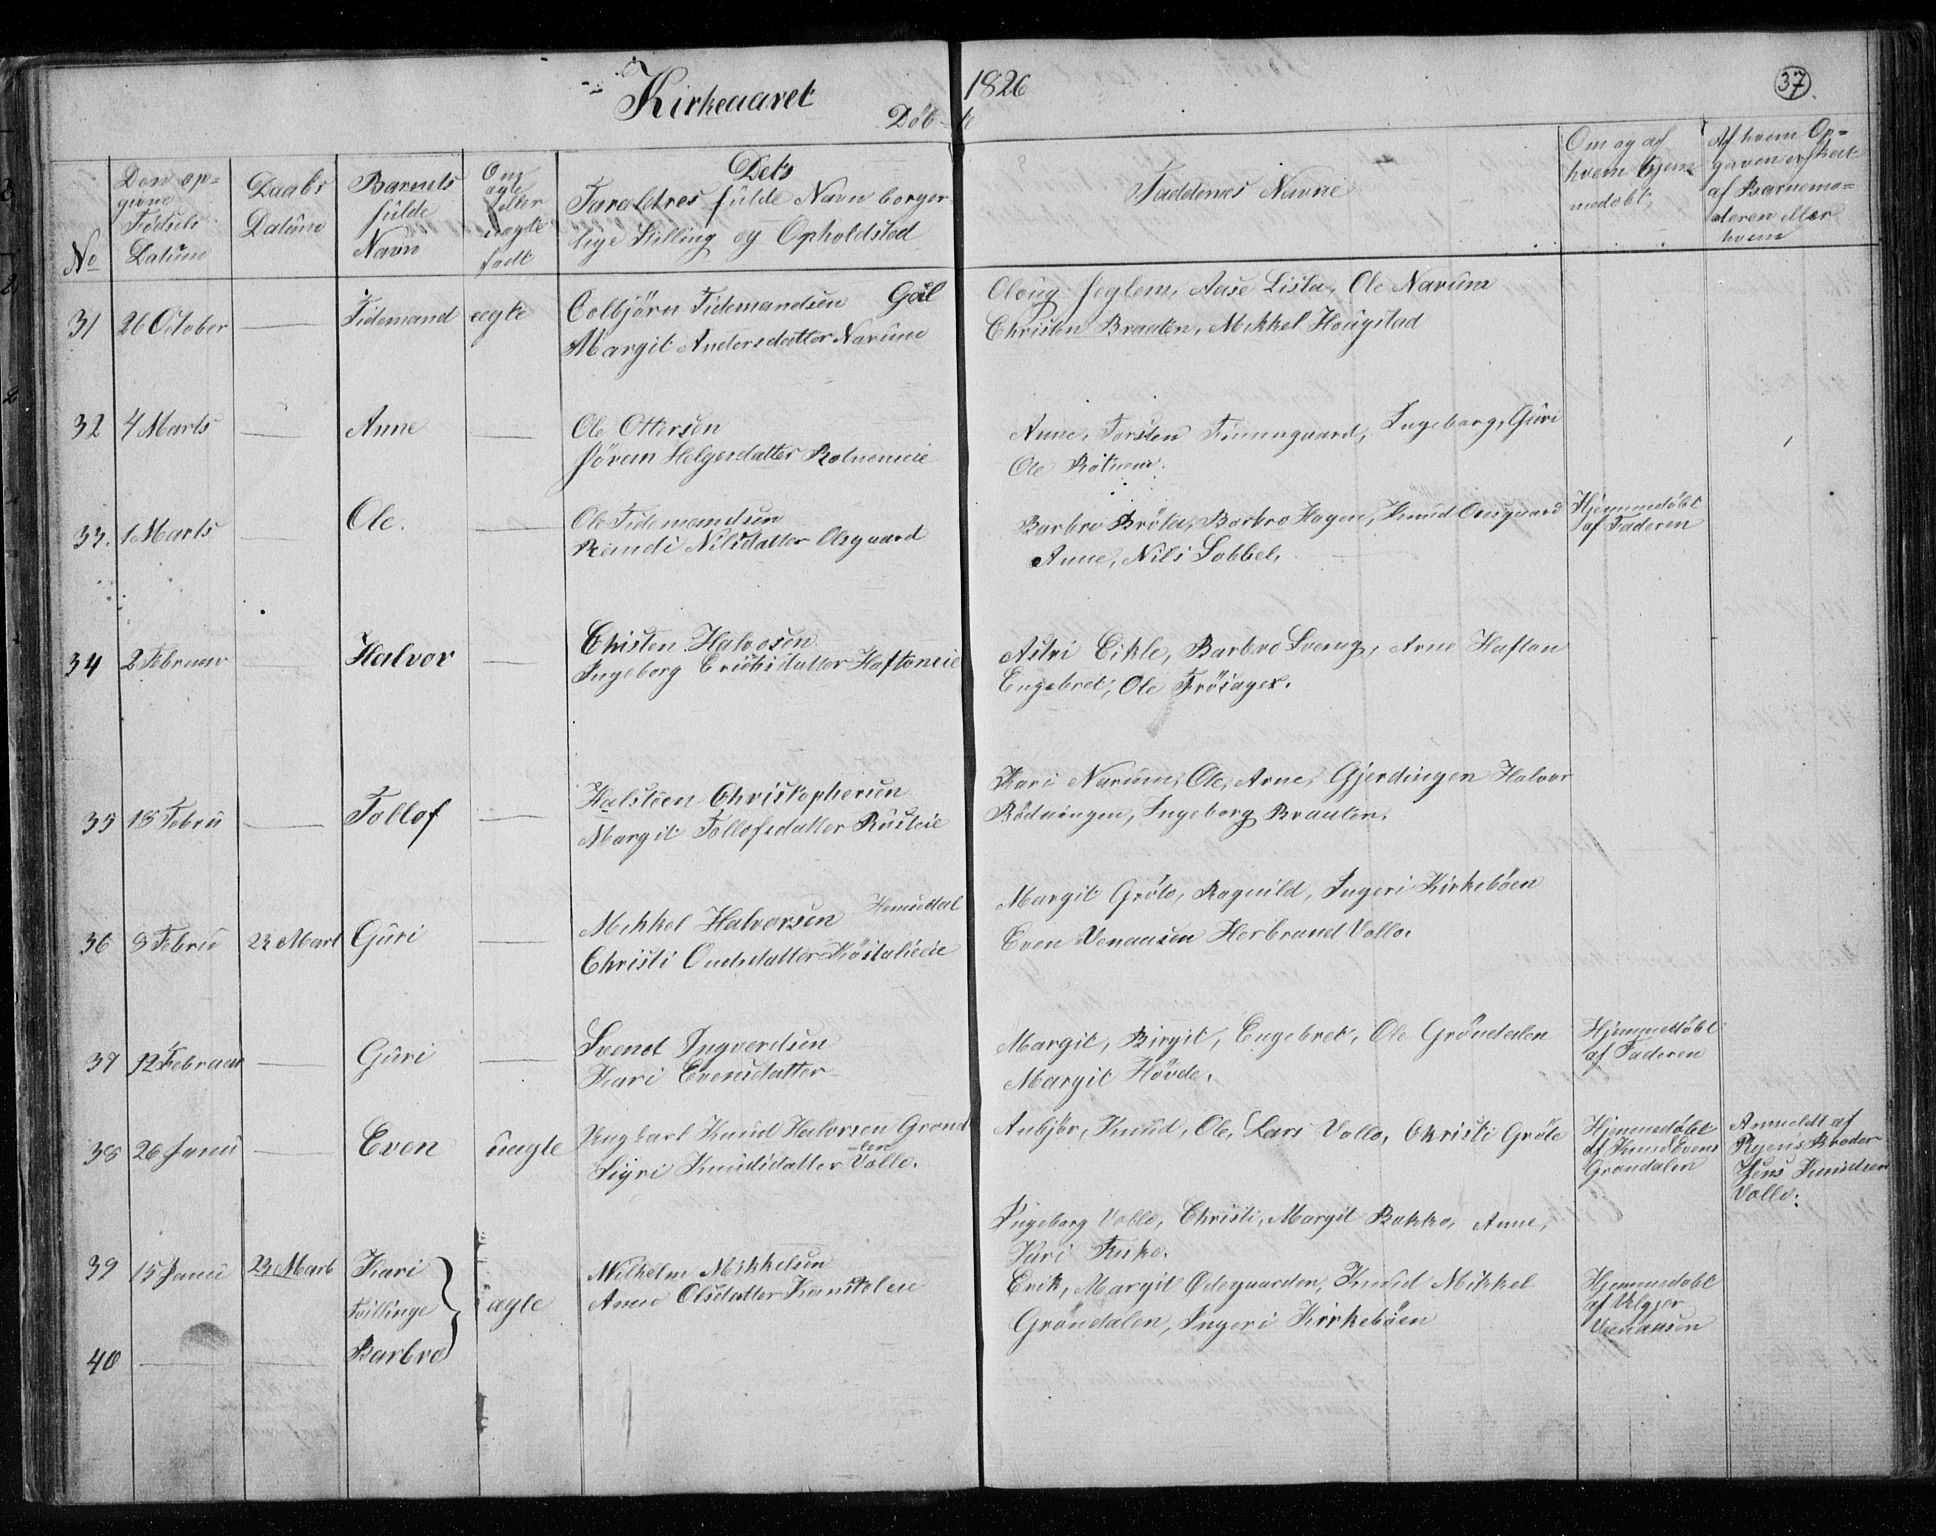 Kirkeaaret 1826
37
Döb-te
No
Den op=
givne
Födsels
Datum
Daabs
Datum
Barnets
fulde
Navn
Om
ægte
eller
uægte
født
Dets
Foreldres fülde Navn borger
lige Stilling og Opholdsted
Faddernes Navne
Om og af
hvem hjem
medöbt
Af hvem Op=
gaven er skeet
af Barnemo=
deren eller
hvem
31 26 October — Tidemand ægte
Colbjörn Tidemandsen Gol
Margit Andersdatter Narum
Oloug Seglem, Aase Lista, Ole Narum
Christen Braaten, Mikkel Hougstad
32 4 Marts — Anne —
Ole Ottersen
Jöran Helgesdatter Rotnemeie
Anne, Torsten Finnngaard, Ingeborg, Guri
Ole Rotnem.
33. 1 Marts — Ole. —
Ole Tidemandsen
Randi Nilsdatter Osgaard
Barbro Bröta, Barbro Hagen, Knud Osgaard
Anne, Nils Lobbel,
Hjemmedöbt
af Faderen
34 2 Februar — Halvor —
Christen Halvosen
Ingeborg Erichsdatter Haftoneie
Astri Eikle, Barbro Sveng, Arne Hafton
Engebret, Ole Trösager.
35 18 Febru — Tollof —
Halsteen Christophersen
Margit Tollofsdatter Rusteie
Kari Narum, Ole, Arne, Gjerdingen Halvor
Rödningen, Ingeborg Braaten.
36 9 Febru 23 Mart Guri —
Mikkel Halvorsen Hemsedal
Christi Oudsdatter
Margit Gröto, Ragnild, Ingeri Kirkeböen
Even Venaasen Herbrand Vollo.
37 12 Februar — Guri —
Svend Ingverdsen
Kari Evensdatter
Margit, Birgit, Engebret, Ole Gröndalen
Margit Hövde.
Hjemmedöbt
af Faderen
38 26 Janu — Even uægte
Ungkarl Knud Halvorsen Grond
alen
Sigri Knudsdatter Vollo.
Anbjör, Knud, Ole, Lars Vollo, Christi Gröte
Hjemmedöbt
af Knud Evens
Gröndalen
Anmeldt af
Pigens Broder
Jens Knudsen
Vollo.
Ingeborg Vollo, Christi, Margit Bakko, Anne,
Kari
39 15 Janu 23 Mart Kari
Tvillinge ægte
Wilhelm Mikkelsen
Anne Olsdatter
Erik, Margit Ödegaarden, Knud Mikkel
Gröndalen, Ingeri Kirkeböen
Hjemmedöbt
af
Venaasen
40 — — Barbro